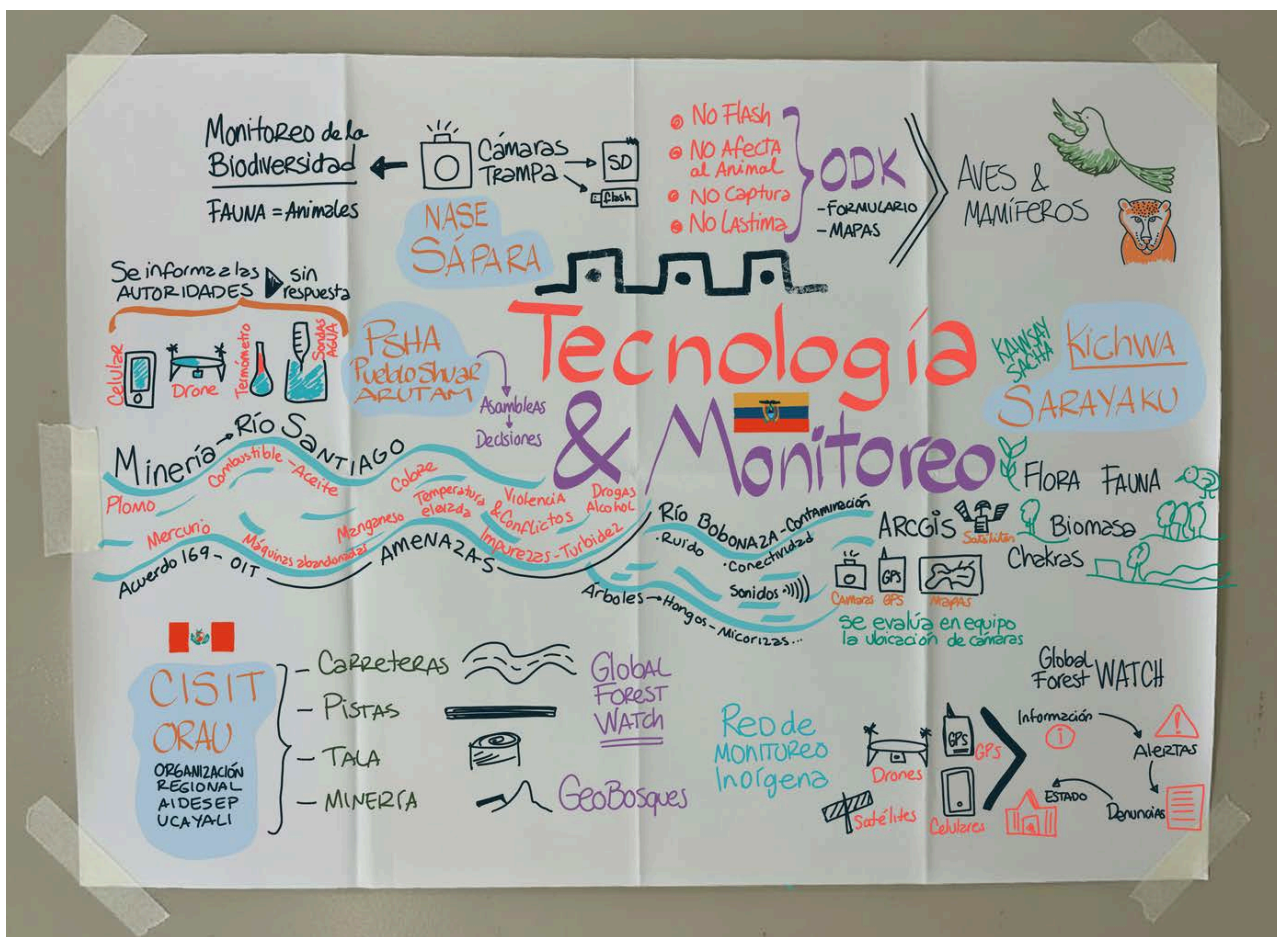 Monitoreo de la
Biodiversidad
FAUNA = Animales
Cámaras
TRAMPA
SD
flash
NASE
SÁPARA
No Flash
No Afecta
al Animal
No Captura
No Lastima
ODK
- FORMULARIO
- MAPAS
AVES &
MAMÍFEROS
Se informa a las
AUTORIDADES
sin
respuesta
Celular
Drone
Termómetro
Sondas
AGUA
PSHA
Pueblo Shuar
ARUTAM
Asambleas
Decisiones
Tecnología
& Monitoreo
KAWSAY
SACHA
Kichwa
SARAYAKU
Minería → Río SANTIAGO
Plomo
Combustible - Aceite
Cobre
Temperatura
elevada
Violencia
& Conflictos
Drogas
Alcohol
Mercurio
Máquinas abandonadas
Manganeso
Impurezas - Turbidez
Acuerdo 169 - OIT
AMENAZAS
Río BOBONAZA - Contaminación
· Ruido
· Conectividad
Sonidos
Árboles → Hongos - Micorizas...
ARCGIS
Satélites
Cámaras
GPS
GPS
MAPAS
se evalúa en equipo
la ubicación de cámaras
FLORA FAUNA
Biomasa
Chakras
CISIT
ORAU
ORGANIZACIÓN
REGIONAL
AIDESEP
UCAYALI
- CARRETERAS
- PISTAS
- TALA
- MINERÍA
GLOBAL
FOREST
WATCH
GeoBosques
Red de
MONITOREO
Inórgena
Drones
GPS
GPS
Satélites
Celulares
Global
Forest WATCH
Información
i
ALERTAS
Denuncias
ESTADO